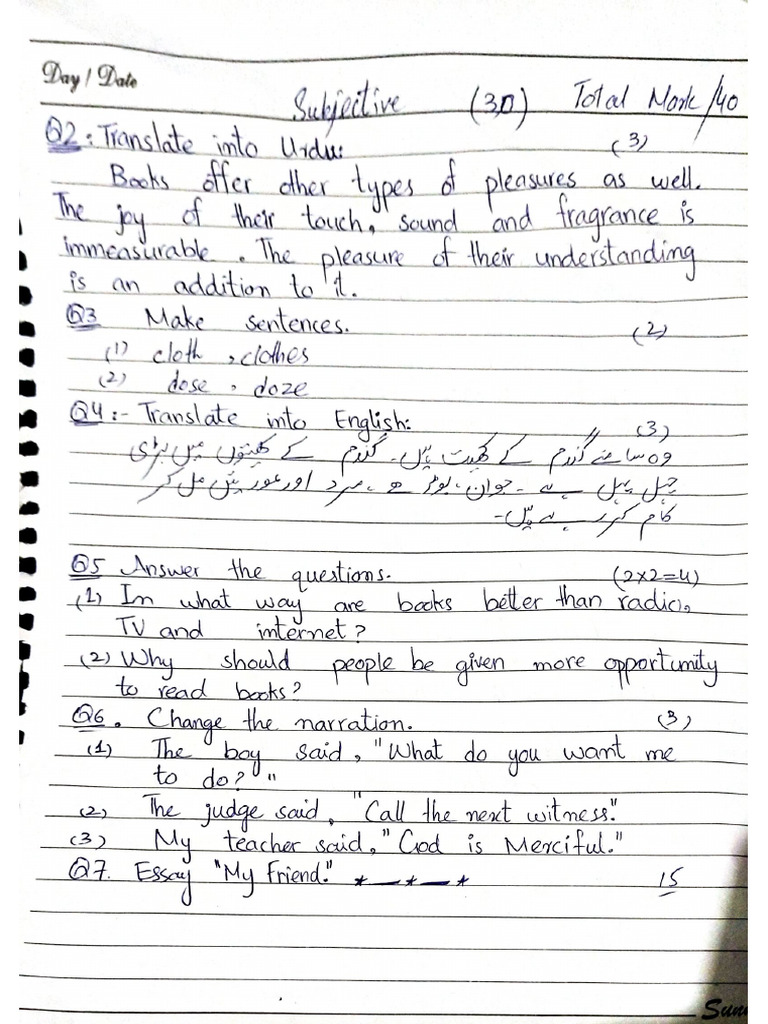 Day / Date
Subjective (30) Total Mark/40
Q2: Translate into Urdu: (3)
Books offer other types of pleasures as well.
The joy of their touch, sound and fragrance is
immeasurable. The pleasure of their understanding
is an addition to it.
Q3 Make sentences. (2)
(1) cloth, clothes
(2) dose, doze
Q4:- Translate into English: (3)
وہ سامنے گندم کے کھیت ہیں۔ گندم کے کھیتوں میں بڑی
چہل پہل ہے۔ جوان، بوڑھے، مرد اور عورتیں مل کر
کام کر رہے ہیں۔
Q5 Answer the questions. (2x2=4)
(1) In what way are books better than radio,
TV and internet?
(2) Why should people be given more opportunity
to read books?
Q6. Change the narration. (3)
(1) The boy said, "What do you want me
to do?"
(2) The judge said, "Call the next witness."
(3) My teacher said, "God is Merciful."
Q7. Essay "My Friend." *—*—* 15